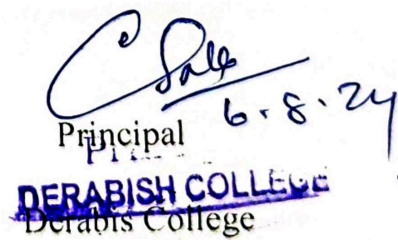 6.8.24
Principal
DERABISH COLLEGE
Derabis College